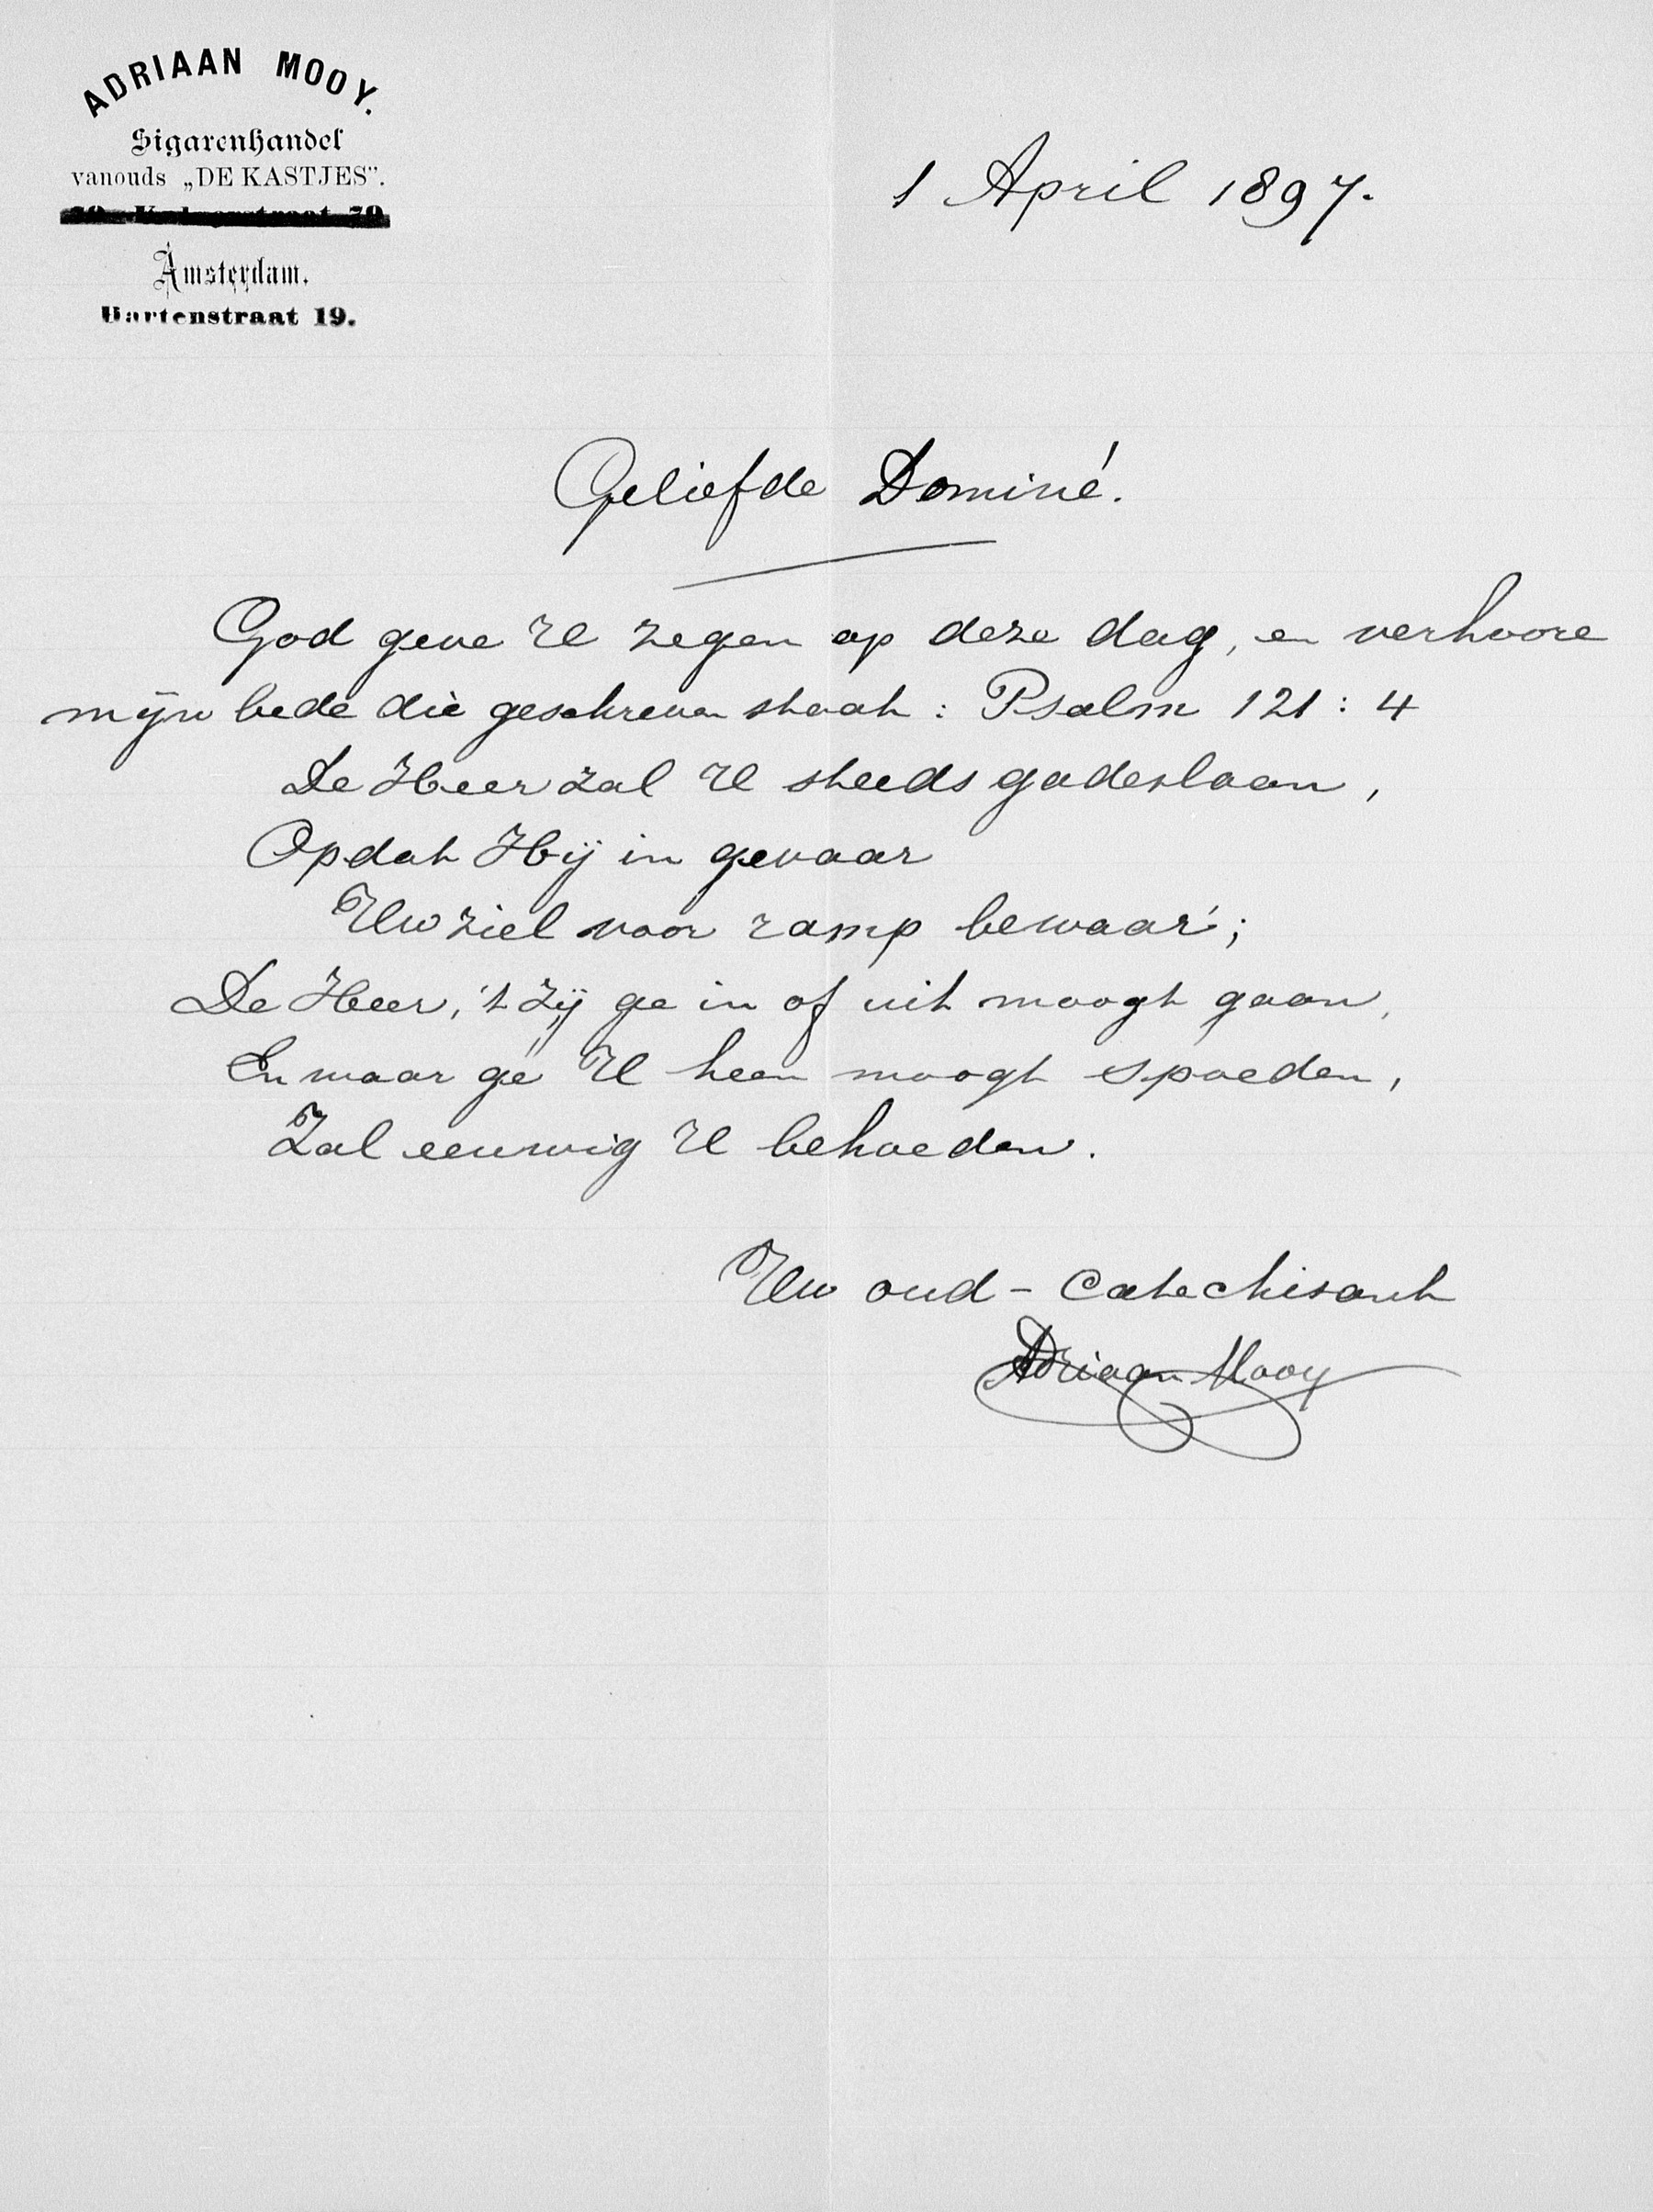 ADRIAAN MOOY.
Sigarenhandel
vanouds „DE KASTJES”.
Amsterdam.
Hartenstraat 19.
1 April 1897.
Geliefde Dominé.
God geve U zegen op deze dag, en verhoore
mijn bede die geschreven staat: Psalm 121:4
De Heer zal U steeds gadeslaan,
Opdat Hij in gevaar
Uw ziel voor ramp bewaar';
De Heer, 't zij ge in of uit moogt gaan,
En waar ge U heen moogt spoeden,
Zal eeuwig U behoeden.
Uw oud-Catechisant
Adriaan Mooy